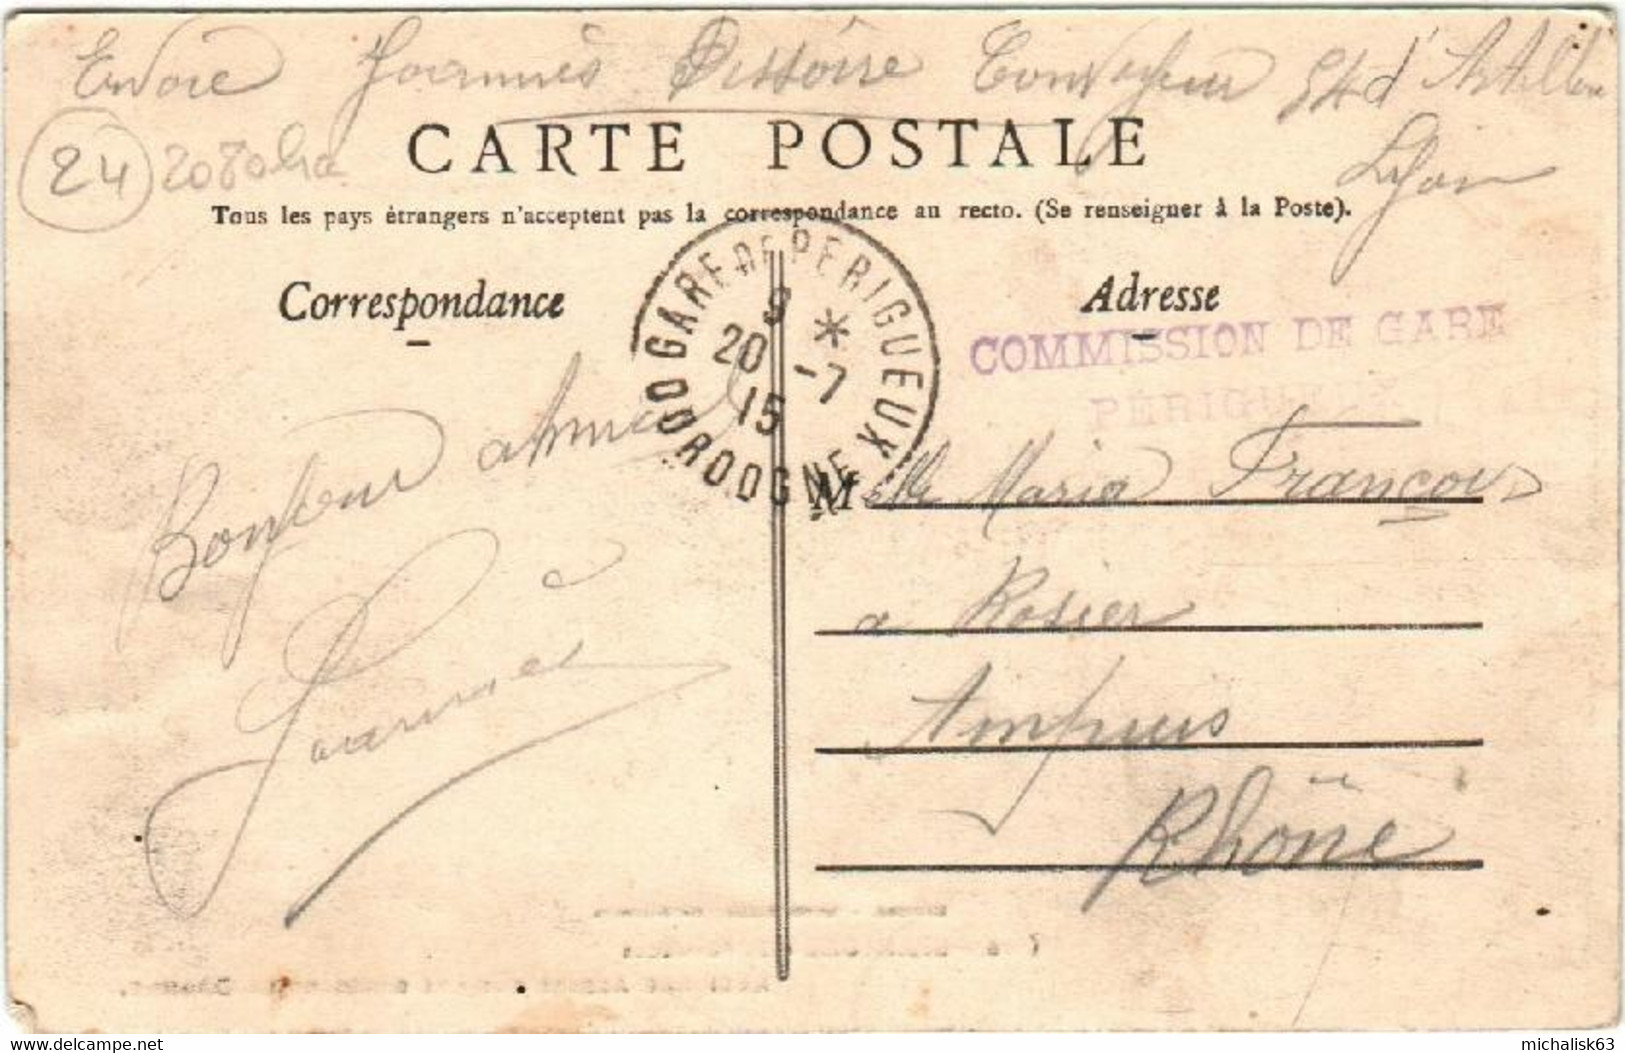 Envoie Joannès Dissoire Convoyeur 54 d'Artillerie
Lyon
24
CARTE POSTALE
Tous les pays étrangers n'acceptent pas la correspondance au recto. (Se renseigner à la Poste).
Correspondance
Adresse
GARE DE PERIGUEUX
9 *
20 -7
15
DORDOGNE
COMMISSION DE GARE
PÉRIGUEUX
Bonjour
Joannès
Melle Maria François
a Rosier
Ampuis
Rhône
michalisk63
www.delcampe.net